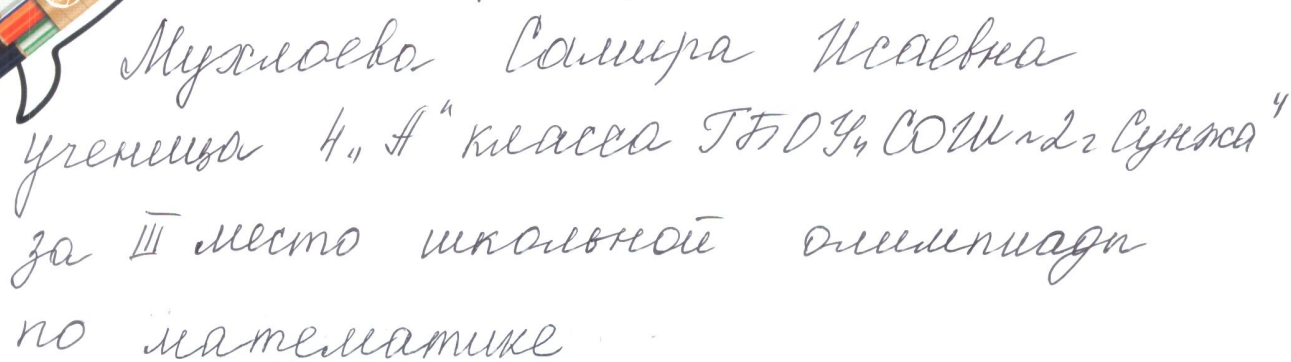 Мухлоева Самира Исаевна
ученица 4 „А“ класса ГБОУ „СОШ №2 г Сунжа“
за III место школьной олимпиады
по математике